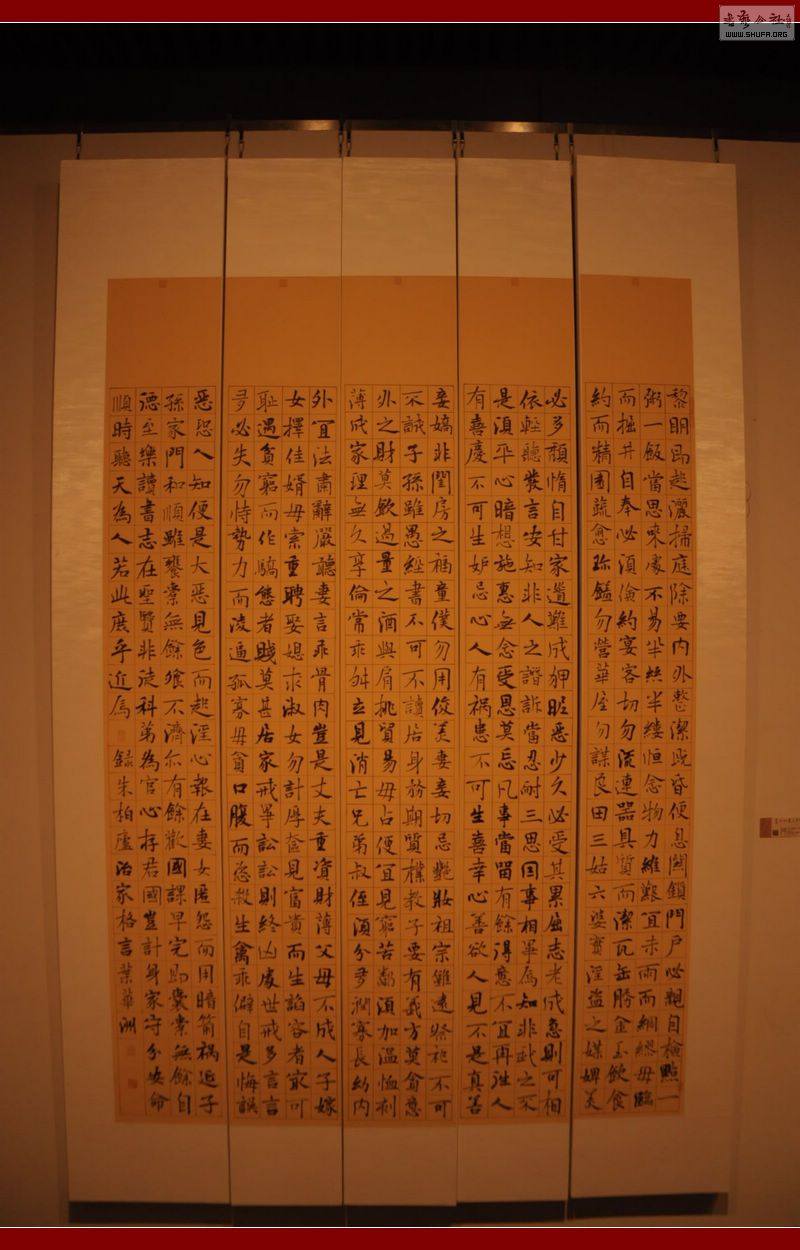 黎明即起灑掃庭除要内外整潔既昏便息關鎖門户必親自檢點一
粥一飯當思來處不易半絲半縷恒念物力維艱宜未雨而綢繆毋臨
而掘井自奉必須儉約宴客切勿流連器具質而潔瓦缶勝金玉飲食
約而精園蔬愈珍饈勿營華屋勿謀良田三姑六婆實淫盜之媒婢美
必多頹惰自甘家道難成狎昵惡少久必受其累屈志老成急則可相
依輕聽發言安知非人之譖訴當忍耐三思因事相爭焉知非我之不
是須平心暗想施惠無念受恩莫忘凡事當留有餘得意不宜再往人
有喜慶不可生妒忌心人有禍患不可生喜幸心善欲人見不是真善
妾嬌非閨房之福童僕勿用俊美妻妾切忌艷妝祖宗雖遠祭祀不可
不誠子孫雖愚經書不可不讀居身務期質樸教子要有義方莫貪意
外之財莫飲過量之酒與肩挑貿易毋占便宜見窮苦鄰須加温恤刻
薄成家理無久享倫常乖舛立見消亡兄弟叔侄須分多潤寡長幼内
外宜法肅辭嚴聽妻言乖骨肉豈是丈夫重資財薄父母不成人子嫁
女擇佳婿毋索重聘娶媳求淑女勿計厚奩見富貴而生諂容者最可
恥遇貧窮而作驕態者賤莫甚居家戒爭訟訟則終凶處世戒多言言
多必失勿恃勢力而凌逼孤寡毋貪口腹而恣殺生禽乖僻自是悔誤
惡恐人知便是大惡見色而起淫心報在妻女匿怨而用暗箭禍延子
孫家門和順雖饔橐無餘飧不濟亦有餘歡國課早完即囊橐無餘自
德至樂讀書志在聖賢非徒科第為官心存君國豈計身家守分安命
順時聽天為人若此庶乎近焉 錄朱柏廬治家格言葉華洲
書藝公社
WWW.SHUFA.ORG